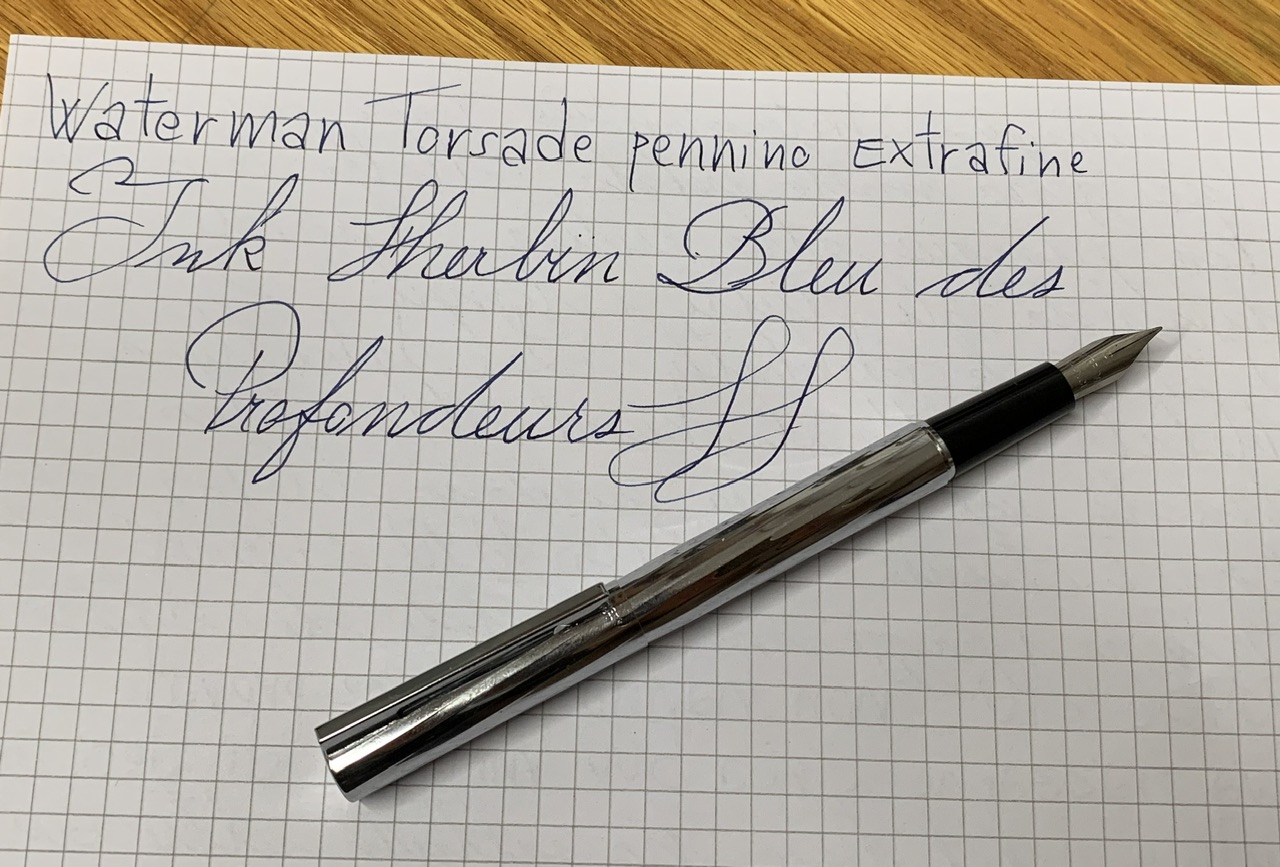 Waterman Torsade pennino Extrafine
Ink Jherbin Bleu des
Profondeurs